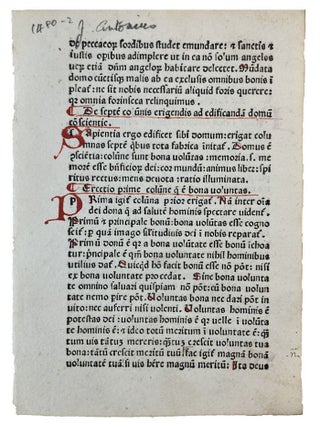 1480-2 J. Antonius
de peccatoꝝ sordibus studet emundare: ⁊ sanctis ⁊
iustis opibus adimplere ut in ea nō solū angelos
uerū etiā dn̄m angeloꝝ habitare delectet. Mūdata
domo cūctisꝗ malis ab ea exclusis omnibus bonis ī
pleať: ne sit nobis necessariū aliquid foris querere:
qꝛ omnia forinseca relinquimus.
De septē colūnis erigendis ad edificandā domū
cōscientie.
Sapientia ergo edificet sibi domum: erigat colu
mnas septē qͥbus tota fabrica initať. Domus ē
cōsciētia: colūne sunt bona uolūtas: memoria. s. me
mores esse bn̄ficioꝝ dei: cor mundū: animus liber: spi
ritus rectus: mens deuota: ratio illuminata.
Erectio prime colūne q̄ ē bona uolūtas.
Prima igiť colūna prior erigať. Nā inter oīa
dei dona q̄ ad salutē hominis spectare uidenť.
Primū ⁊ principale bonū: bona uolūtas esse cogno
sciť: ꝑ quā imago siĺitudinis dei ī nobis reparať.
Primū donū ē qꝛ a bona uolūtate esse bonū īchoa
tur: pͥncipale ē qm̄ bona uoluntate nihil hominibus
utilius dať. Quicqͥd hō facit bonū esse nō pōt: nisi
ex bona uoluntate procedat. Sine bona uolunta
te omnino saluari quispiam nō pōt: cū bona uolun
tate nemo pire pōt. Voluntas bona nec dari pōt in
uito: nec auferri nisi uolenti. Voluntas hominis ē
potestas dei: uoluntas hominis ē qꝛ uelle ī uolūta
te hominis ē: ⁊ ideo totū meritum ī uoluntate ē: q̄
tum uis tātus merens: q̄tus crescit uoluntas tua
bona: tātū crescit meritū tuū: fac igiť magnā bonā
uoluntatē tuā si uis hr̄e magnū meritū: Ita deus